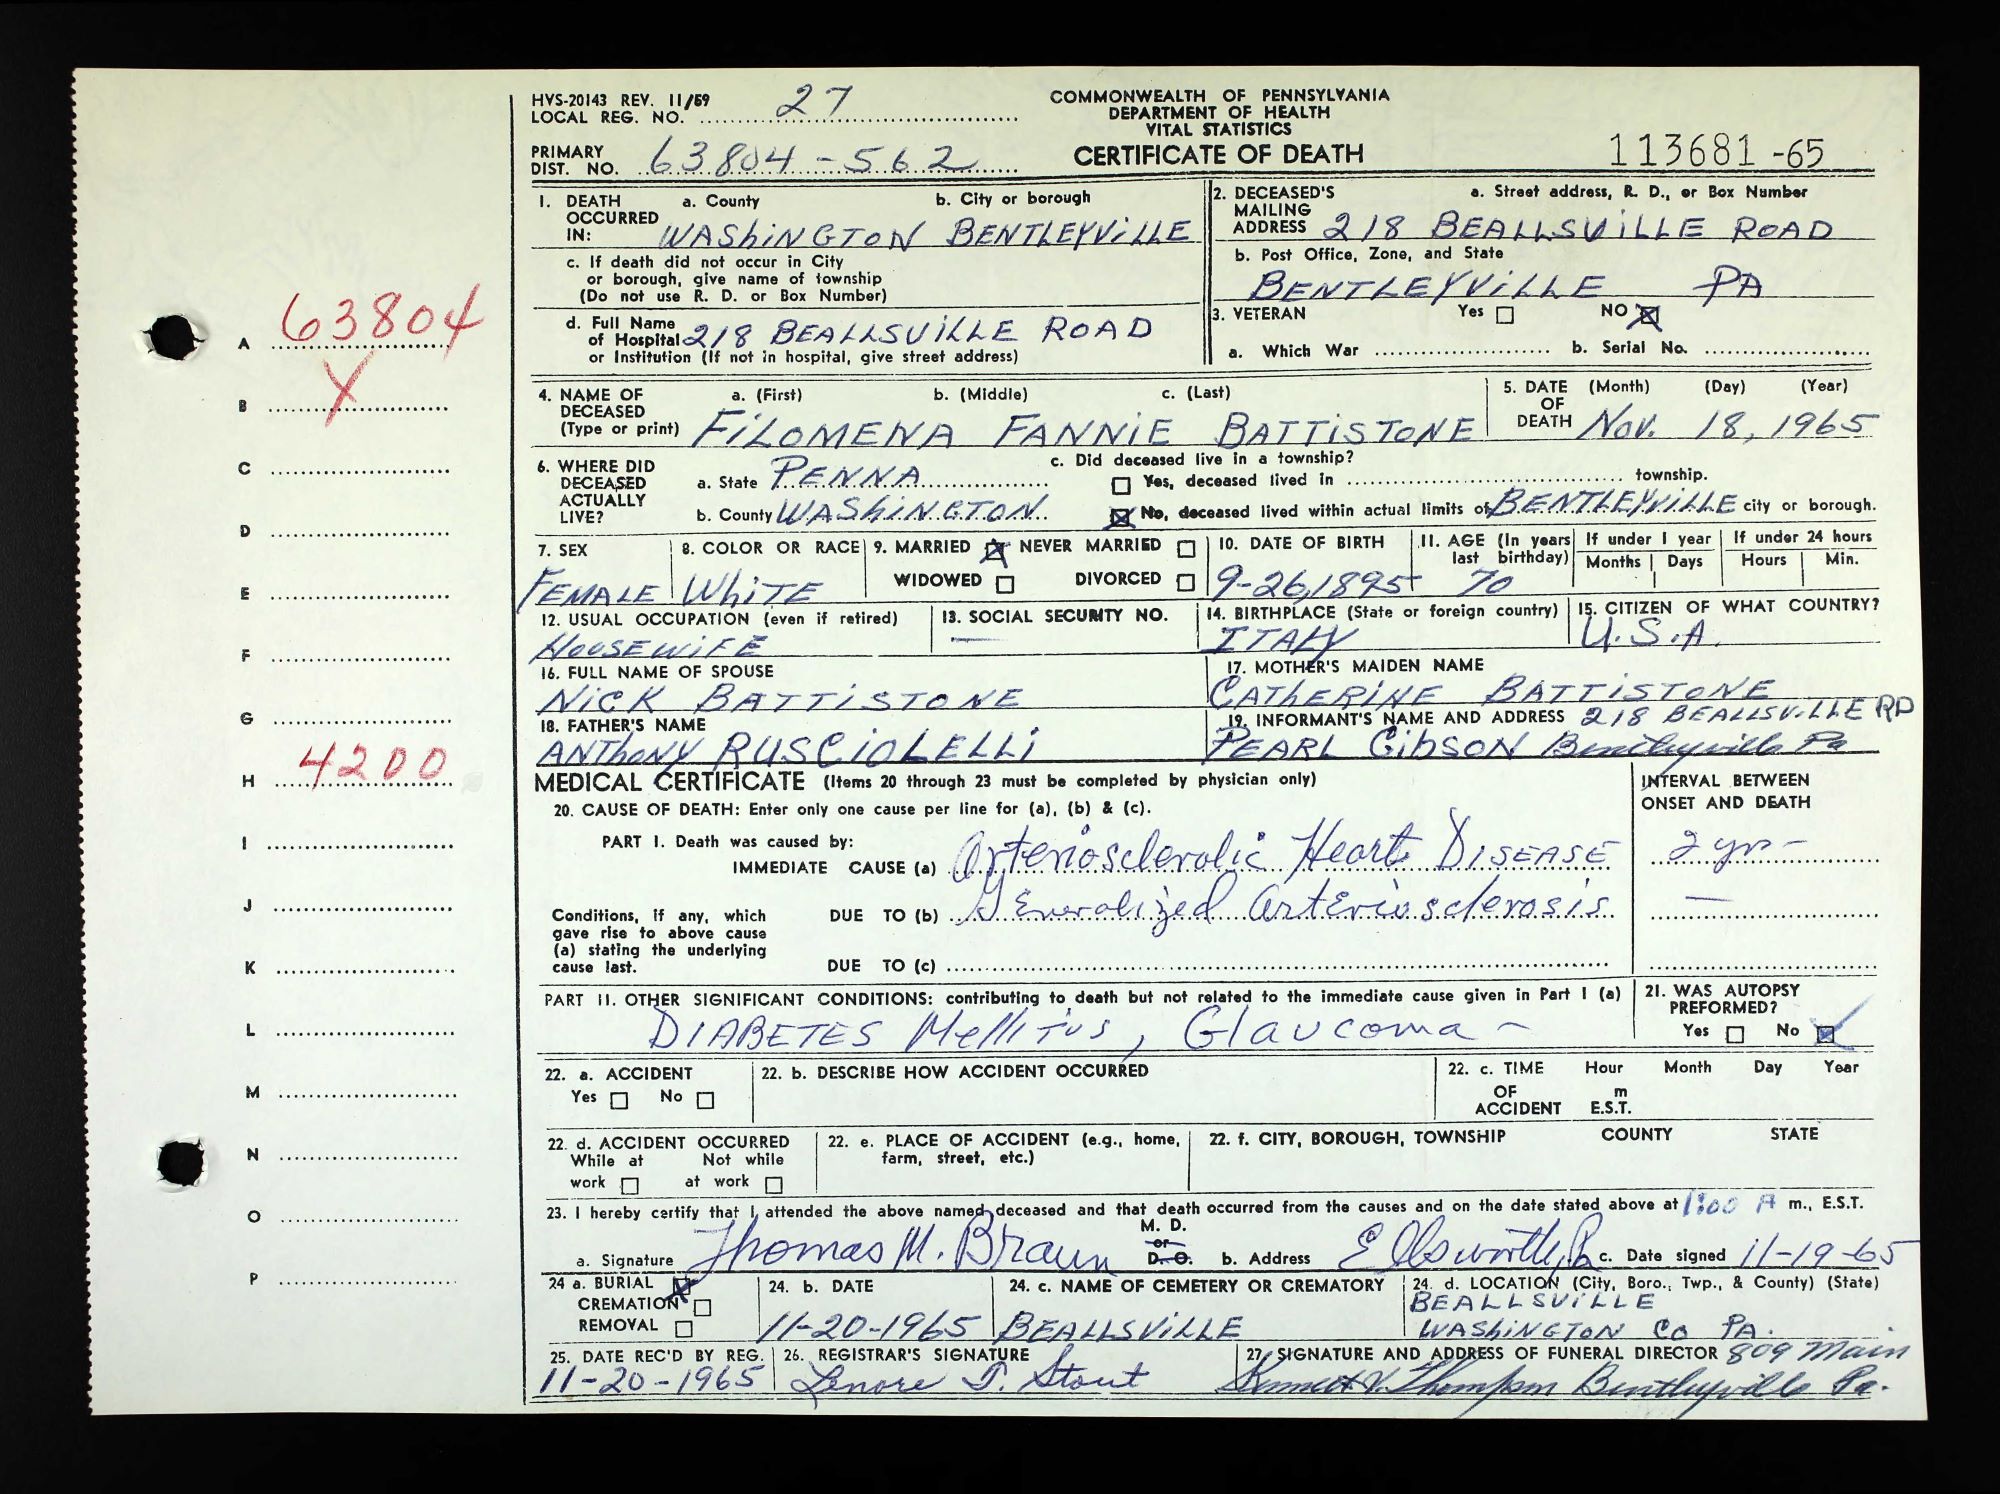 HVS-20143 REV. 11/59
LOCAL REG. NO. 27
COMMONWEALTH OF PENNSYLVANIA
DEPARTMENT OF HEALTH
VITAL STATISTICS
CERTIFICATE OF DEATH
PRIMARY DIST. NO. 63804-562
113681-65
1. DEATH OCCURRED IN: a. County b. City or borough
WAShiNGTON BENTLEYViLLE
c. If death did not occur in City
or borough, give name of township
(Do not use R. D. or Box Number)
d. Full Name of Hospital 218 BEALLSViLLE ROAD
or Institution (If not in hospital, give street address)
2. DECEASED'S MAILING ADDRESS a. Street address, R. D., or Box Number
218 BEALLSViLLE ROAD
b. Post Office, Zone, and State
BENTLEYViLLE PA
3. VETERAN Yes NO X
a. Which War b. Serial No.
4. NAME OF DECEASED (Type or print) a. (First) b. (Middle) c. (Last)
FiLOMENA FANNiE BATTiSTONE
5. DATE OF DEATH (Month) (Day) (Year)
Nov. 18, 1965
6. WHERE DID DECEASED ACTUALLY LIVE?
a. State PENNA
b. County WAShiNGTON
c. Did deceased live in a township?
Yes, deceased lived in township.
X No, deceased lived within actual limits of BENTLEYViLLE city or borough.
7. SEX
FEMALE
8. COLOR OR RACE
WhiTE
9. MARRIED X NEVER MARRIED
WIDOWED DIVORCED
10. DATE OF BIRTH
9-26,1895
11. AGE (In years last birthday)
70
If under 1 year
Months Days
If under 24 hours
Hours Min.
12. USUAL OCCUPATION (even if retired)
HOUSEWiFE
13. SOCIAL SECURITY NO.
—
14. BIRTHPLACE (State or foreign country)
ITALY
15. CITIZEN OF WHAT COUNTRY?
U.S.A.
16. FULL NAME OF SPOUSE
NiCK BATTiSTONE
17. MOTHER'S MAIDEN NAME
CAThERiNE BATTiSTONE
18. FATHER'S NAME
ANThONY RUSCiOLELLi
19. INFORMANT'S NAME AND ADDRESS 218 BEALLSViLLE RD
PEARL GibSON Bentleyville Pa
MEDICAL CERTIFICATE (Items 20 through 23 must be completed by physician only)
INTERVAL BETWEEN
ONSET AND DEATH
20. CAUSE OF DEATH: Enter only one cause per line for (a), (b) & (c).
PART I. Death was caused by:
IMMEDIATE CAUSE (a) Arteriosclerotic Heart DISEASE 2 yrs –
Conditions, if any, which
gave rise to above cause
(a) stating the underlying
cause last.
DUE TO (b) Generalized Arteriosclerosis —
DUE TO (c)
PART II. OTHER SIGNIFICANT CONDITIONS: contributing to death but not related to the immediate cause given in Part I (a)
DIABETES Mellitus, Glaucoma –
21. WAS AUTOPSY
PREFORMED?
Yes No X
22. a. ACCIDENT
Yes No
22. b. DESCRIBE HOW ACCIDENT OCCURRED
22. c. TIME OF ACCIDENT Hour Month Day Year
m
E.S.T.
22. d. ACCIDENT OCCURRED
While at work Not while at work
22. e. PLACE OF ACCIDENT (e.g., home,
farm, street, etc.)
22. f. CITY, BOROUGH, TOWNSHIP COUNTY STATE
23. I hereby certify that I attended the above named deceased and that death occurred from the causes and on the date stated above at 1:00 A m., E.S.T.
a. Signature Thomas M. Braun M. D. or D. O. b. Address Ellsworth, Pa c. Date signed 11-19-65
24 a. BURIAL X
CREMATION
REMOVAL
24. b. DATE
11-20-1965
24. c. NAME OF CEMETERY OR CREMATORY
BEALLSViLLE
24. d. LOCATION (City, Boro., Twp., & County) (State)
BEALLSViLLE
WAShiNGTON CO PA.
25. DATE REC'D BY REG.
11-20-1965
26. REGISTRAR'S SIGNATURE
Lenore T. Stout
27. SIGNATURE AND ADDRESS OF FUNERAL DIRECTOR 809 Main
Kenneth V. Thompson Bentleyville Pa.
A 63804
B X
C
D
E
F
G
H 4200
I
J
K
L
M
N
O
P